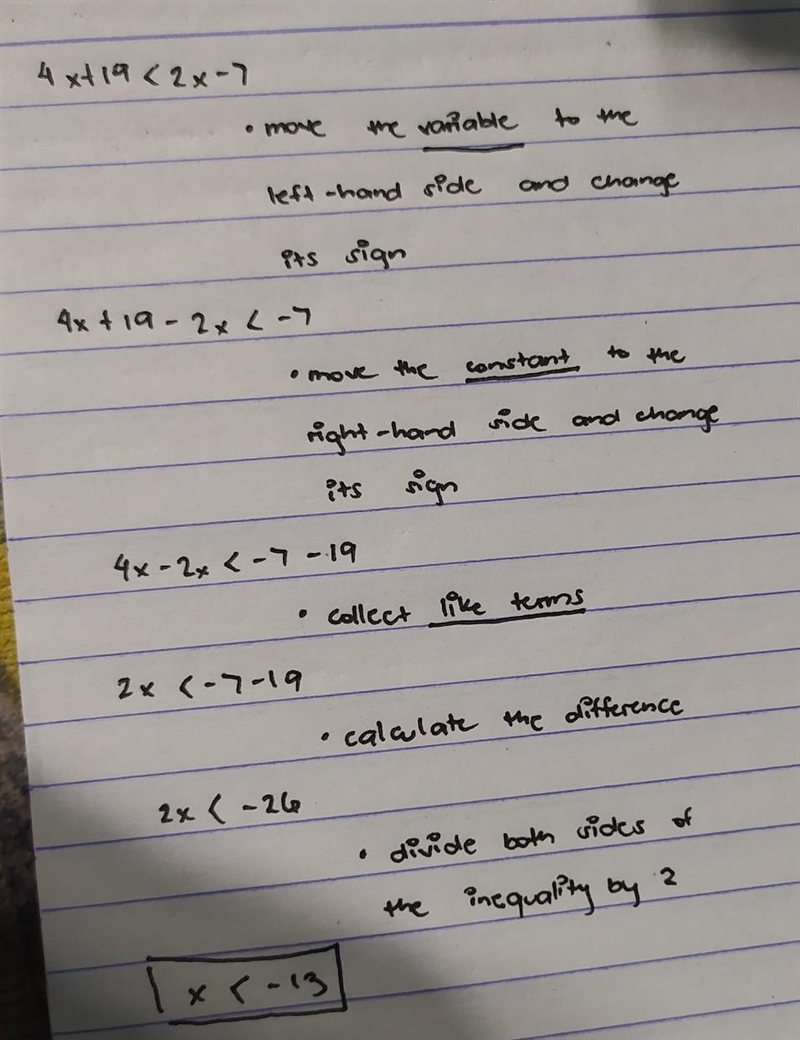 4x+19 < 2x-7
• move the variable to the
left-hand side and change
its sign
4x + 19 - 2x < -7
• move the constant to the
right-hand side and change
its sign
4x - 2x < -7 -19
• collect like terms
2x < -7-19
• calculate the difference
2x < -26
• divide both sides of
the inequality by 2
x < -13